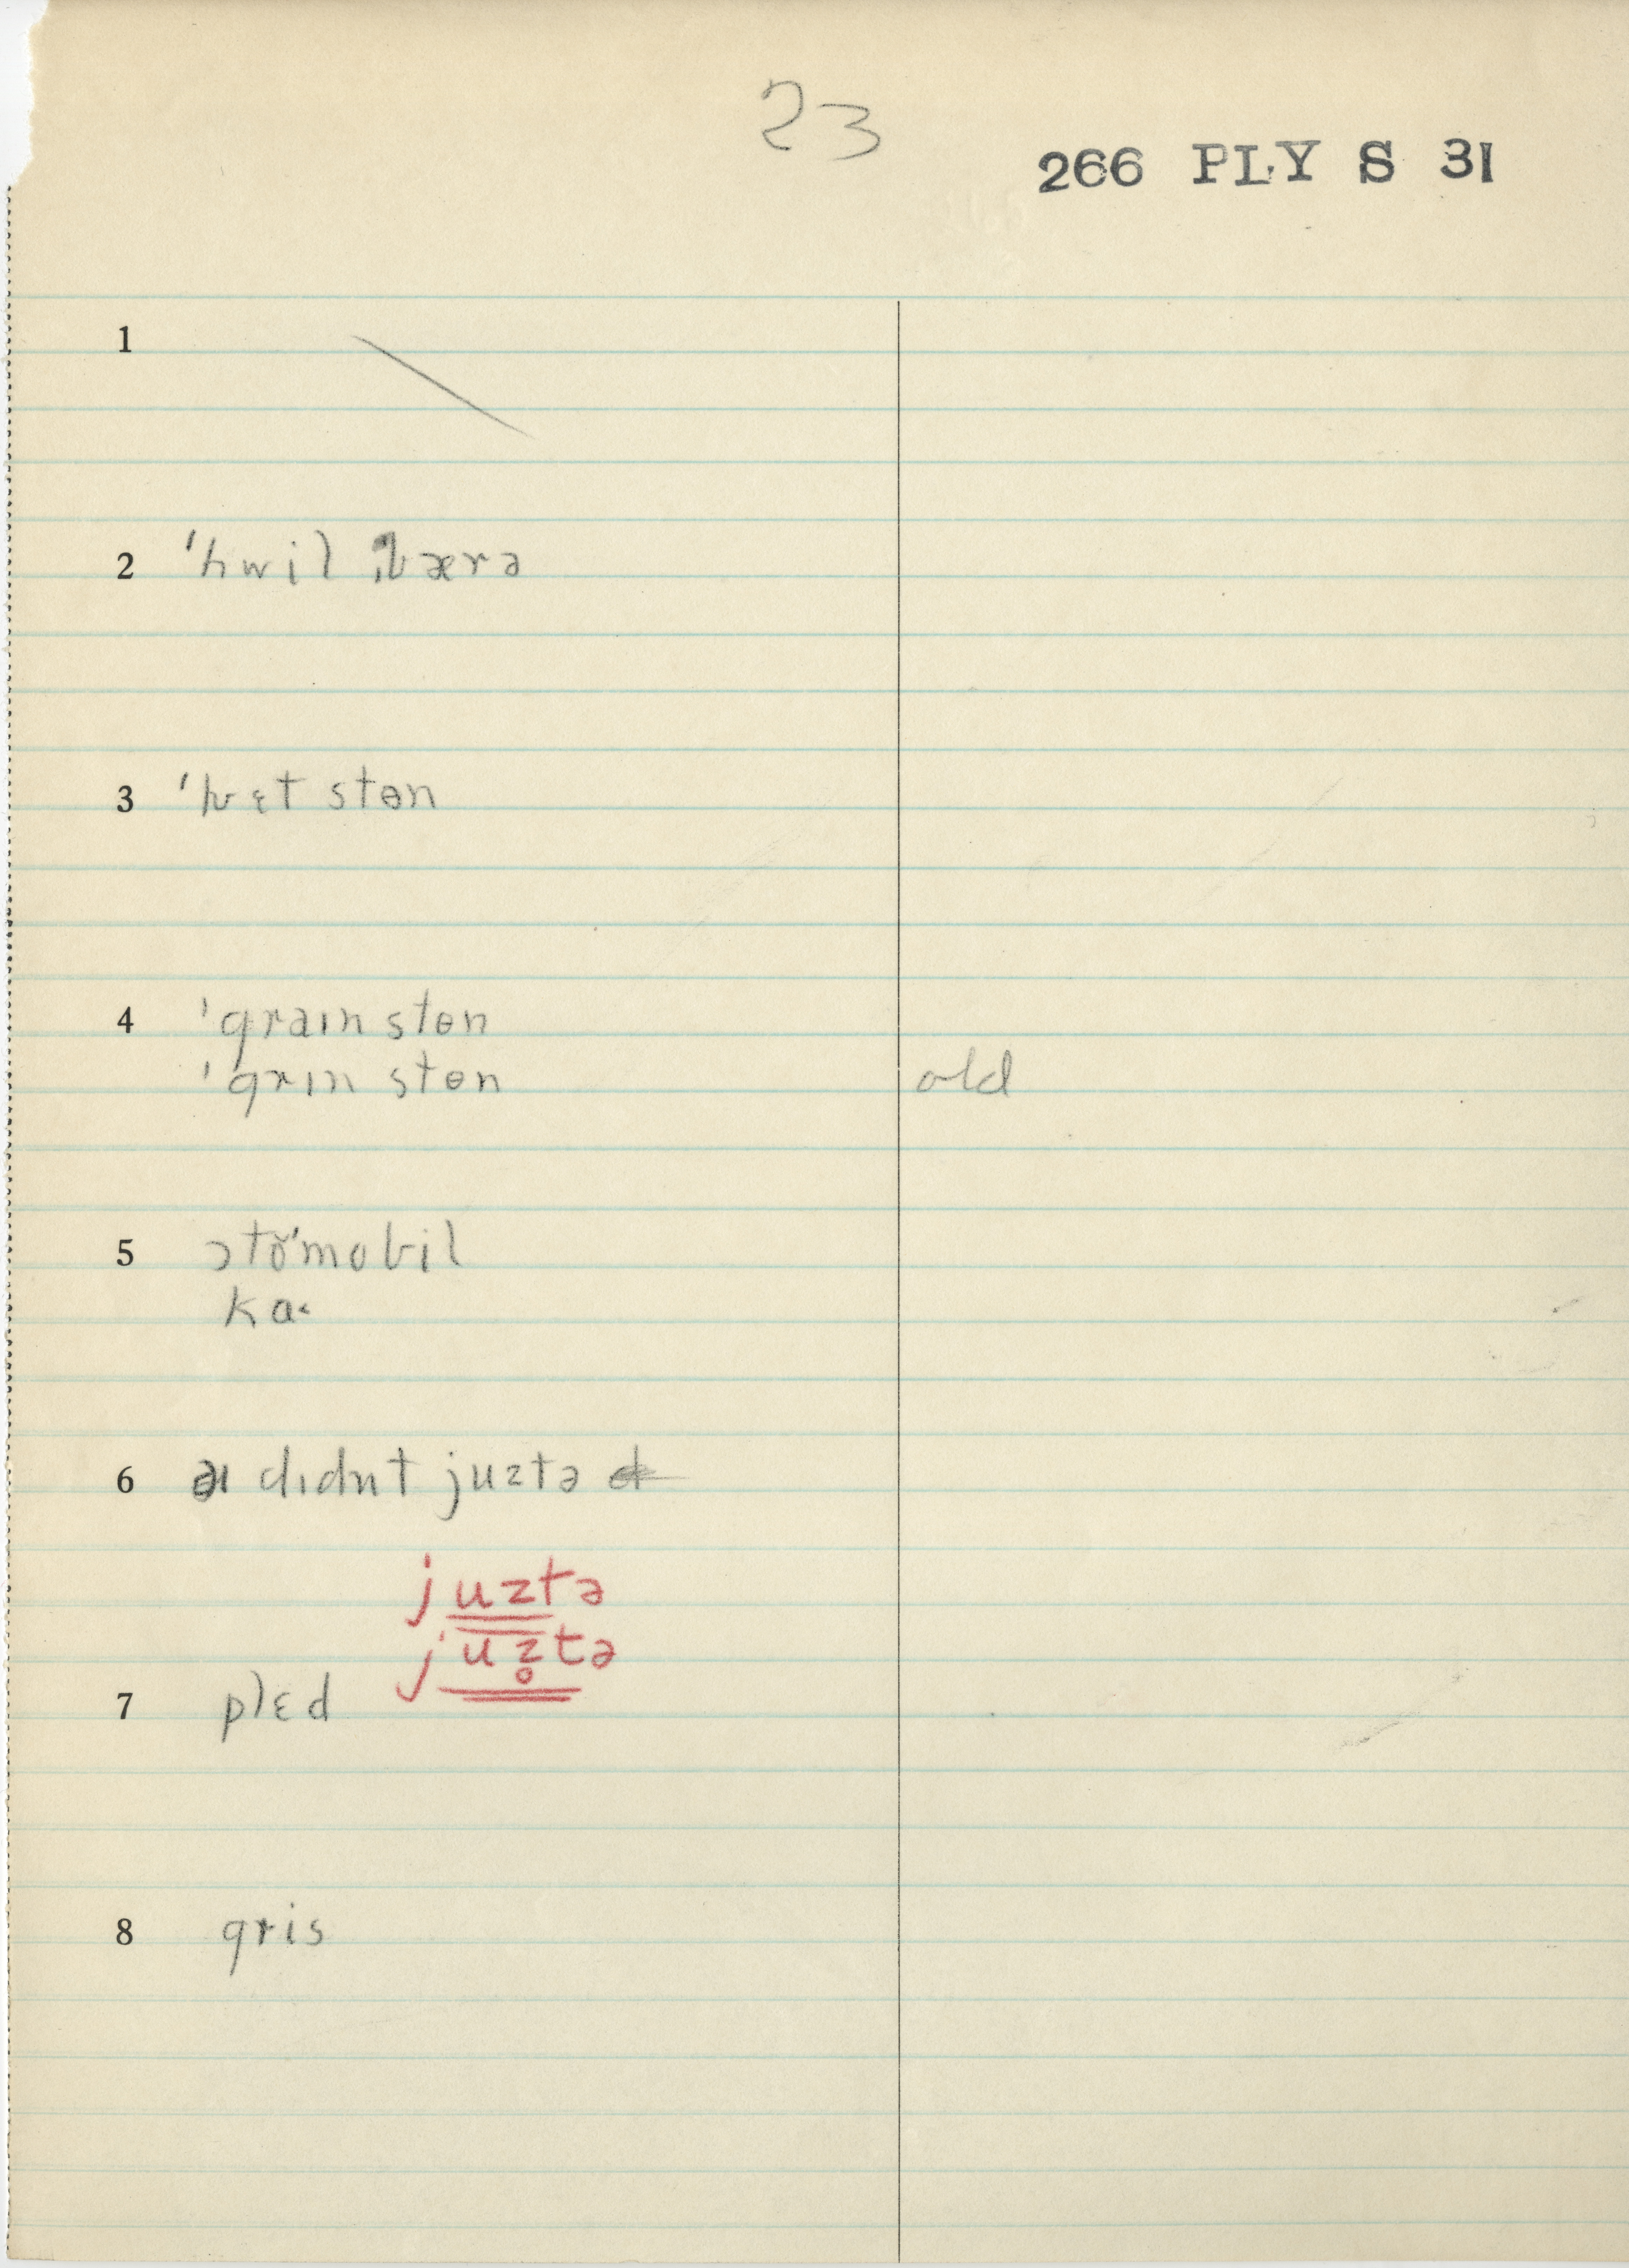 23
266 PLY S 31
1
2 ˈhwil ˌbærə
3 ˈhwɛt stɵn
4 ˈgraın stɵn
ˈgrın stɵn old
5 ɔtŏˈmobil
ka˂
6 əı dıdnt juztə
juztə
juz̥tə
7 plɛd
8 gris